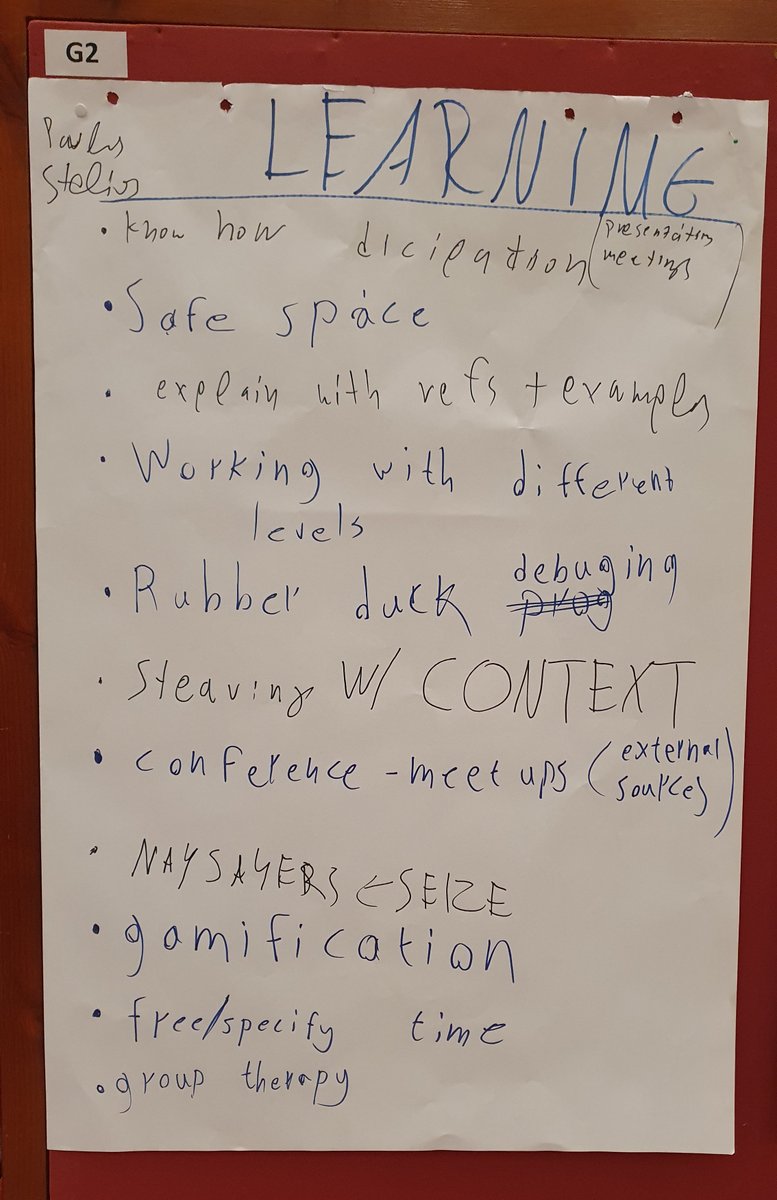 G2
LEARNING
Stelios
• know how dicipation (presentations
meetings)
• Safe space
• explain with refs + examples
• Working with different
levels
• Rubber duck prog debuging
• Steaving W/ CONTEXT
• conference - meet ups (external
sources)
• NAYSAYERS ← SEIZE
• gamification
• free/specify time
• group therapy